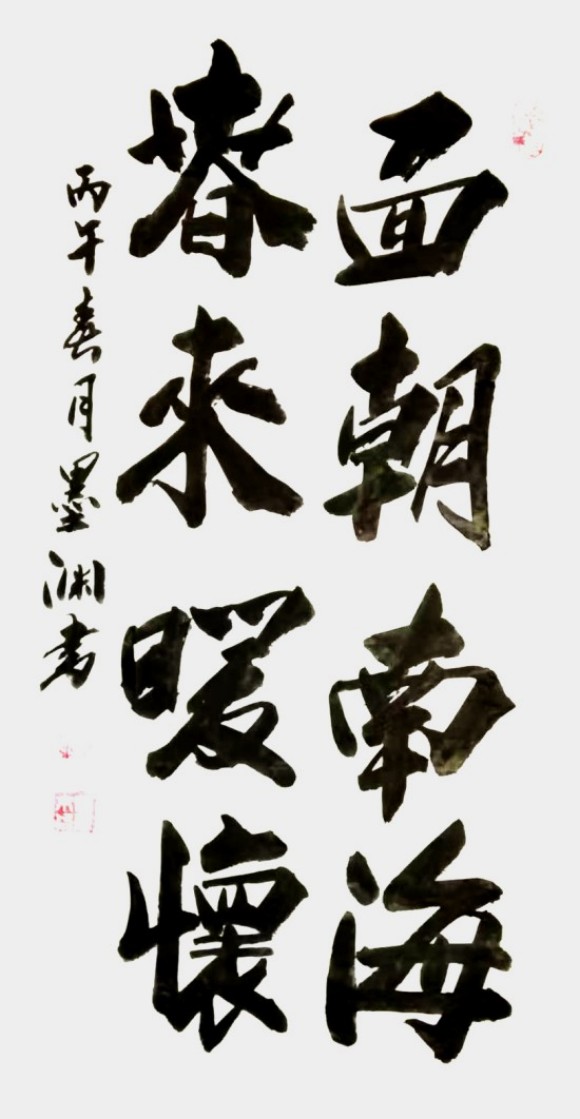 面朝南海
春來暖懷
丙午春月墨渊書